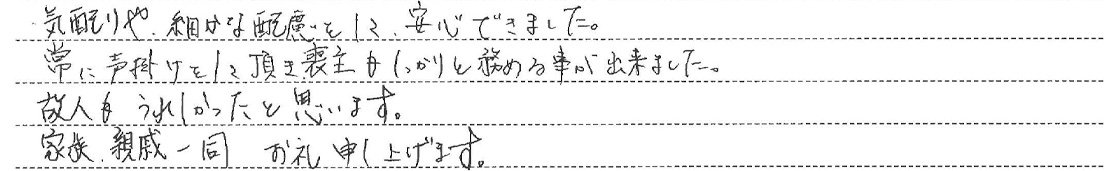 気配りや、細かな配慮をして、安心できました。
常に声掛けをして頂き喪主もしっかりと務める事が出来ました。
故人もうれしかったと思います。
家族、親戚一同　お礼申し上げます。